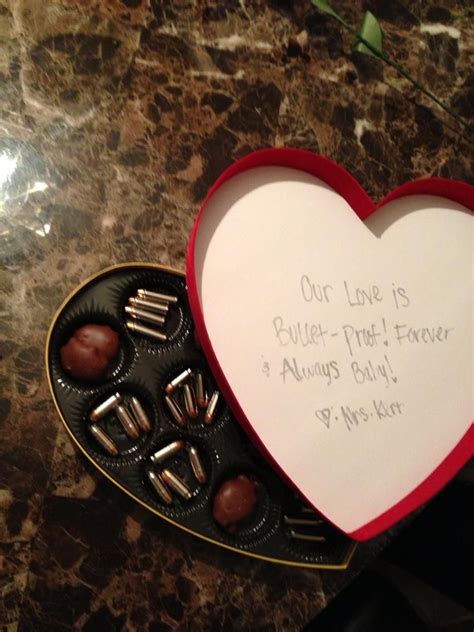 Our Love is
Bullet-proof! Forever
& Always Baby!
♡. Mrs. Kert